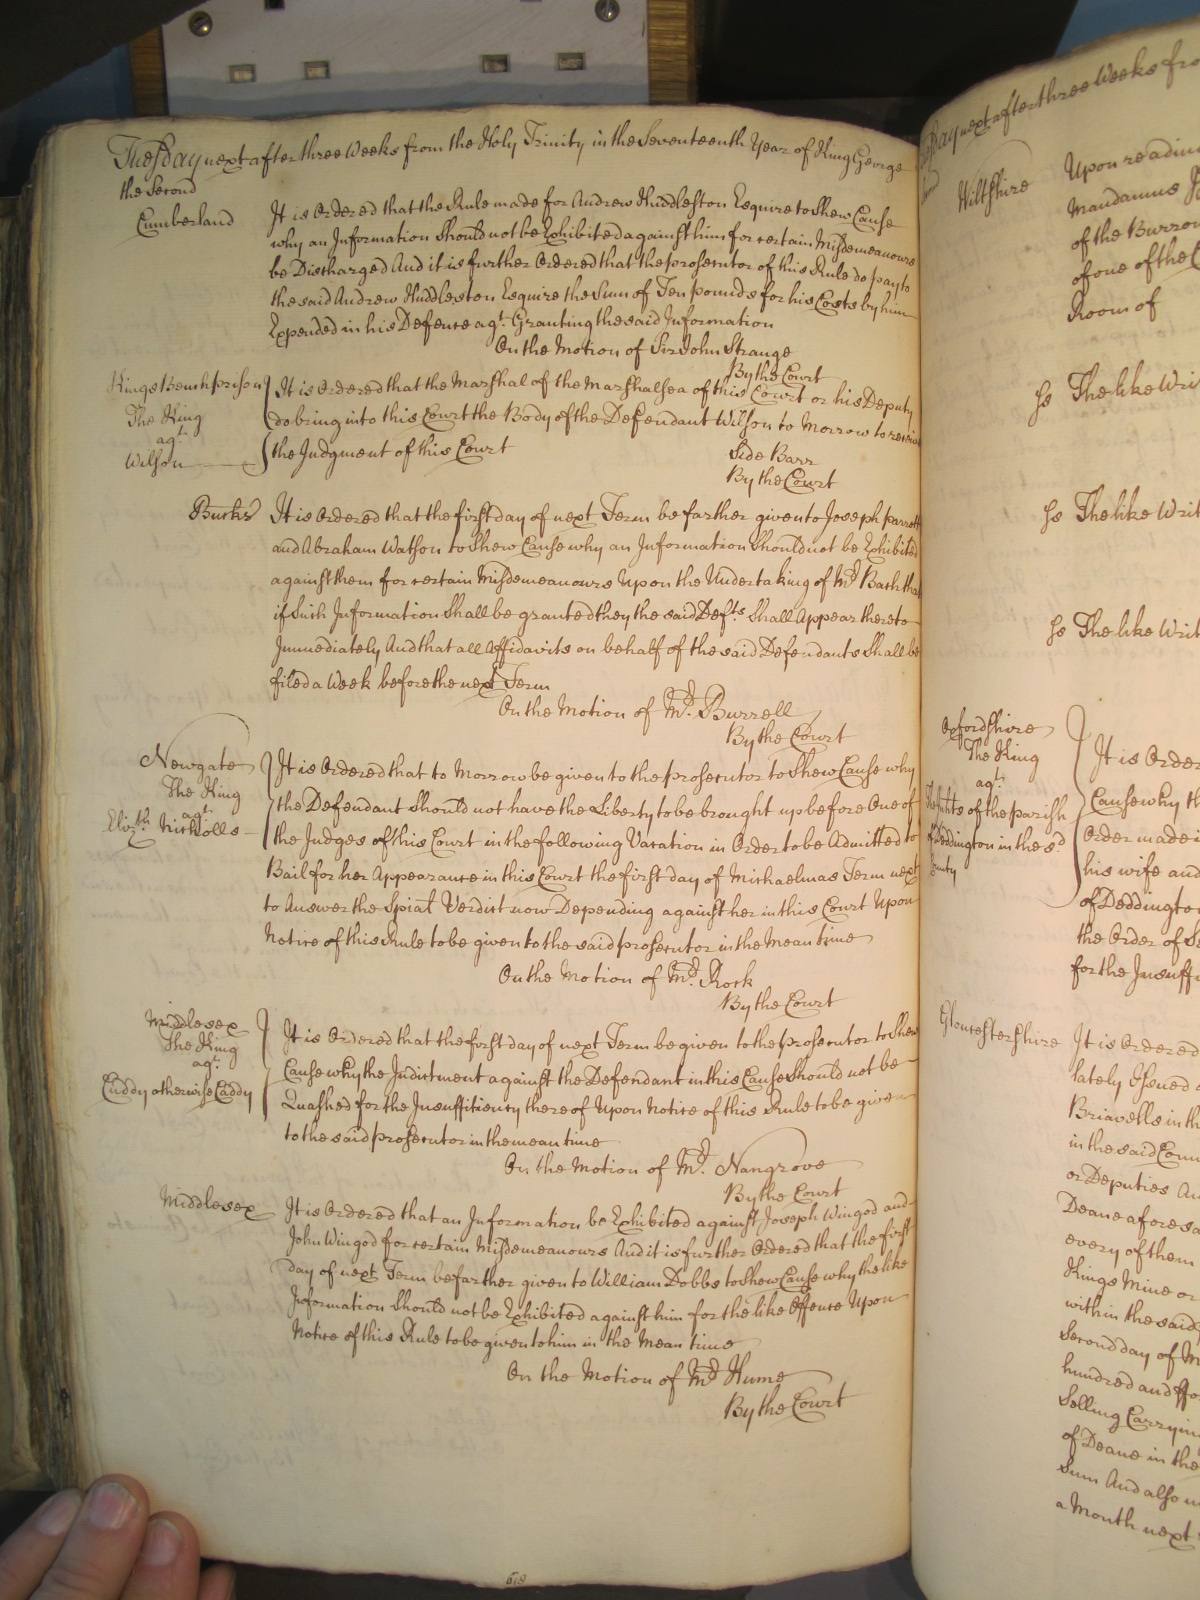 Tuesday next after three Weeks from the Holy Trinity in the Seventeenth Year of King George
the Second
Cumberland
It is Ordered that the Rule made for Andrew Huddleston Esquire to Shew Cause
why an Information Should not be Exhibited against him for certain Misdemeanours
be Discharged And it is further Ordered that the prosecutor of this Rule do pay to
the said Andrew Huddleston Esquire the Sum of Ten pounds for his Costs by him
Expended in his Defence agt. Granting the said Information
On the Motion of Sir John Strange
By the Court
Kings Bench prison
The King
agt.
Wilson
It is Ordered that the Marshal of the Marshalsea of this Court or his Deputy
do bring into this Court the Body of the Defendant Wilson to Morrow to receive
the Judgment of this Court
Side Barr
By the Court
Bucks
It is Ordered that the first day of next Term be farther given to Joseph parrott
and Abraham Watson to Shew Cause why an Information Should not be Exhibited
against them for certain Misdemeanours Upon the Undertaking of Mr. Bash that
if Such Information Shall be granted they the said Defts. Shall Appear thereto
Immediately And that all Affidavits on behalf of the said Defendants Shall be
filed a Week before the next Term
On the Motion of Mr. Burrell
By the Court
Newgate
The King
agt.
Elizth. Nicholls
It is Ordered that to Morrow be given to the prosecutor to Shew Cause why
the Defendant Should not have the Liberty to be brought up before One of
the Judges of this Court in the following Vacation in Order to be Admitted to
Bail for her Appearance in this Court the first day of Michaelmas Term next
to Answer the Spial Verdict now Depending against her in this Court Upon
Notice of this Rule to be given to the said prosecutor in the Mean time
On the Motion of Mr. Rock
By the Court
Middlesex
The King
agt.
Cuddy otherwise Caddy
It is Ordered that the first day of next Term be given to the prosecutor to Shew
Cause why the Indictment against the Defendant in this Cause Should not be
Quashed for the Insufficiency thereof Upon Notice of this Rule to be given
to the said prosecutor in the mean time
On the Motion of Mr. Nangrove
By the Court
Middlesex
It is Ordered that an Information be Exhibited against Joseph Wingod and
John Wingod for certain Misdemeanours And it is further Ordered that the first
day of next Term be farther given to William Dobbs to Shew Cause why the like
Information Should not be Exhibited against him for the like Offence Upon
Notice of this Rule to be given to him in the Mean time
On the Motion of Mr. Hume
By the Court
day next after three Weeks fro
Wiltshire
Upon readin
Mandamus
of the Burrou
of one of the C
Room of
Ss The like Writ
Ss The like Writ
Ss The like Writ
Oxfordshire
The King
agt.
of the parish
of Deddington in the sd.
County
It is Order
Cause why th
Order made
his wife and
of Deddington
the Order of S
for the Insuffi
Gloucestershire
It is Ordered
lately Issued
Briavells in th
in the said Coun
or Deputies An
Deane aforesa
every of them
Kings Mine or
within the said
Second day of M
hundred and ffo
Selling Carryin
of Deane in the
Sum And also
a Month next